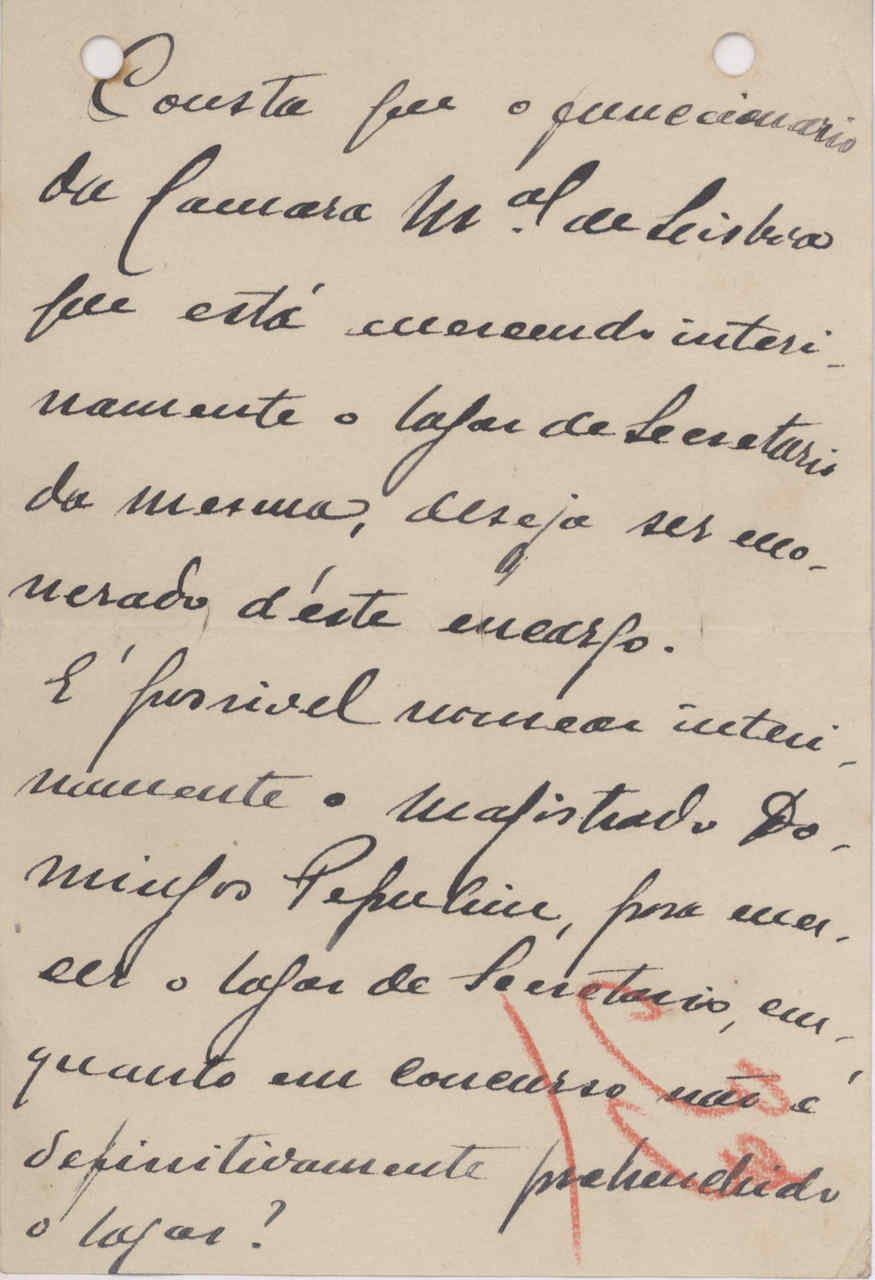 Consta que o funccionario
da Camara M.al de Lisboa
que está exercendo interi-
namente o logar de Secretario
da mesma, deseja ser exo-
nerado d'éste encargo.
É possivel nomear interi-
namente o magistrado Do-
mingos Pepulim, para exer-
cer o logar de Secretario, em-
quanto em concurso não é
definitivamente prehenchido
o logar?